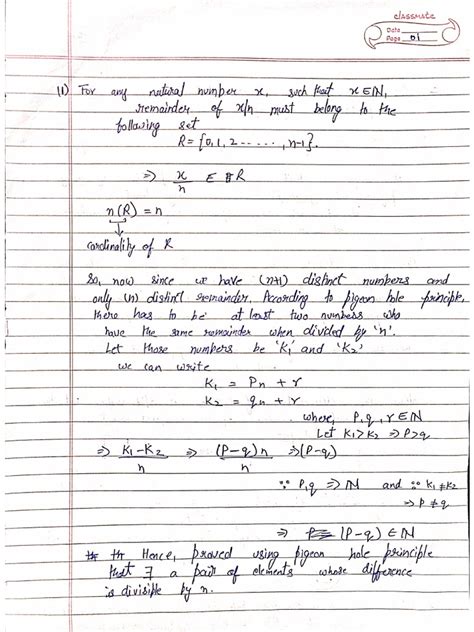 classmate
Date
Page 01
11) For any natural number x, such that x ∈ ℕ,
remainder of x/n must belong to the
following set
R = {0, 1, 2 ------, n-1}.
⇒ x/n ∈ R
n(R) = n
↓
cardinality of R
So, now since we have (n+1) distinct numbers and
only (n) distinct remainder, According to pigeon hole principle,
there has to be at least two numbers who
have the same remainder when divided by 'n'.
Let those numbers be 'K₁' and 'K₂'
we can write
K₁ = Pn + r
K₂ = qn + r
where, P, q, r ∈ ℕ
Let K₁ > K₂ ⇒ P > q
⇒ K₁-K₂/n ⇒ (P-q)n/n ⇒ (P-q)
∵ P, q ⇒ ℕ and ∵ K₁ ≠ K₂
⇒ P ≠ q
⇒ (P-q) ∈ ℕ
Hence, proved using pigeon hole principle
that ∃ a pair of elements whose difference
is divisible by n.